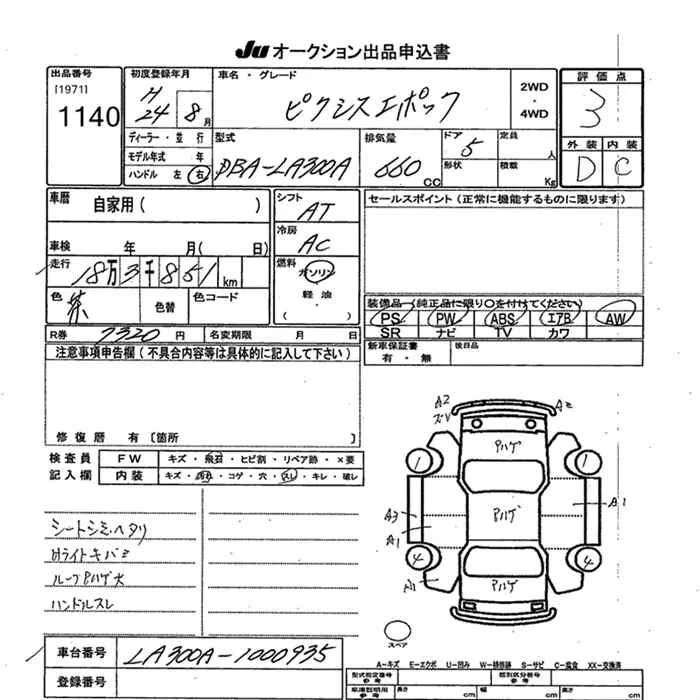 JU オークション出品申込書
出品番号
[1971]
1140
初度登録年月
H
24 8月
車名・グレード
ピクシスエポック
2WD
・
4WD
評価点
3
外装 内装
D C
ディーラー・並行
モデル年式 年
ハンドル 左 右
型式
DBA-LA300A
排気量
660 CC
ドア 5
形状
定員 人
積載 Kg
車歴
自家用( )
車検 年 月( 日)
走行
18万3千851km
色 茶
色替
色コード
シフト
AT
冷房
AC
燃料
ガソリン
軽油
( )
セールスポイント(正常に機能するものに限ります)
装備品(純正品に限り○を付けてください)
PS PW ABS エアB AW
SR ナビ TV カワ
新車保証書
有・無
後日品
R券 7320円
名変期限 月 日
注意事項申告欄(不具合内容等は具体的に記入して下さい)
修復歴 有〔箇所 〕
検査員
記入欄
FW キズ・飛石・ヒビ割・リペア跡・×要
内装 キズ・汚れ・コゲ・穴・スレ・キレ・破レ
シートシミ、ヘタリ
Hライトキバミ
ルーフPハゲ大
ハンドルスレ
A2
ズV
A2
Pハゲ
1 1
Pハゲ
A3
A1
A1
4 4
Pハゲ
A1
スペア
車台番号 LA300A-1000935
登録番号
A-キズ E-エクボ U-凹み W-補修跡 S-サビ C-腐食 XX-交換済
型式指定番号
参考
類別区分番号
参考
車庫証明用
参考
長さ cm 幅 cm 高さ cm